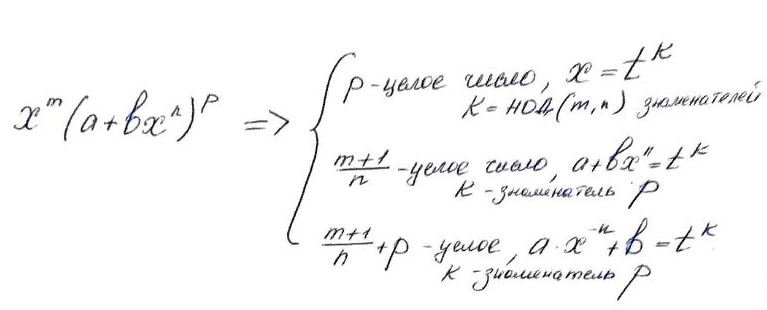 p - целое число, x = t^k
k = НОД(m, n) знаменателей
x^m (a + bx^n)^p => { m+1/n - целое число, a + bx^n = t^k
k - знаменатель p
m+1/n + p - целое, a · x^-n + b = t^k
k - знаменатель p